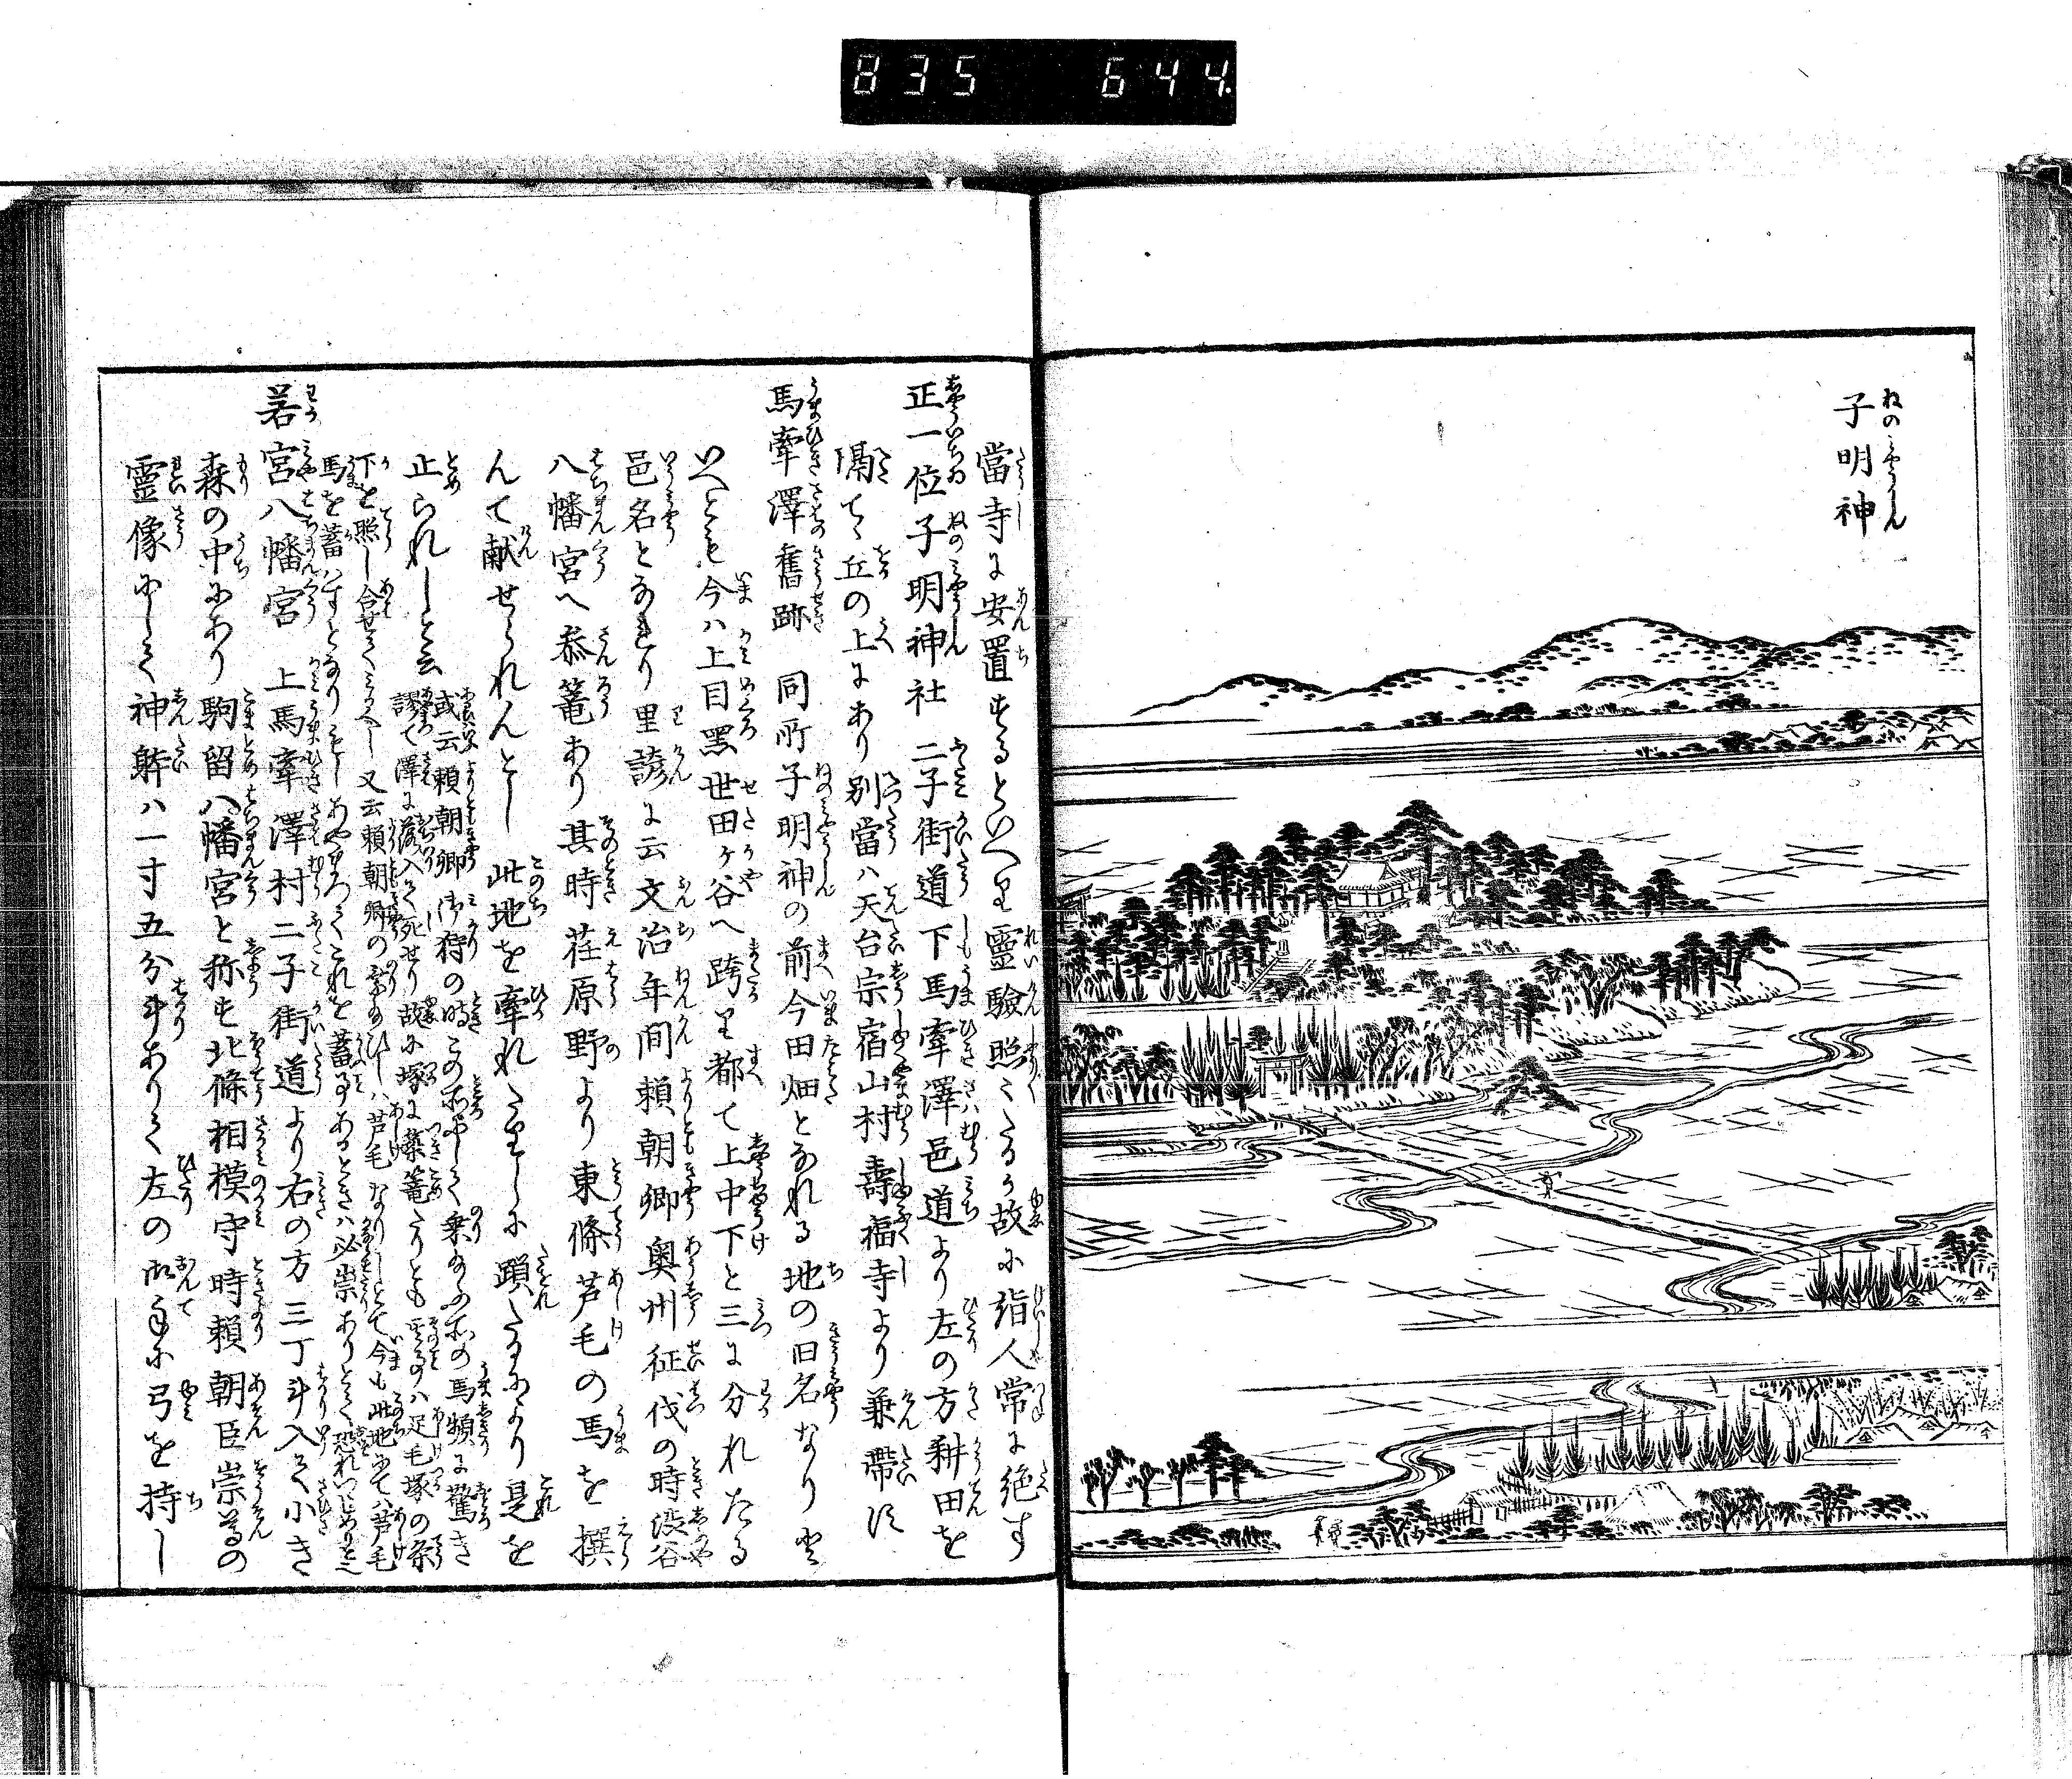 835 644
子明神
當寺に安置するといへり靈驗照々たる故に詣人常に絶す
正一位子明神社 二子街道下馬牽澤邑道より左の方耕田を
隔てゝ丘の上にあり別當ハ天台宗宿山村壽福寺より兼帶す
馬牽澤舊跡 同所子明神の前今田畑となれる地の旧名なり
いへとも今ハ上目黑世田ヶ谷へ跨り都て上中下と三に分れたる
邑名となれり里諺に云文治年間頼朝卿奥州征伐の時渋谷
八幡宮へ恭篭あり其時荏原野より東條芦毛の馬を撰
んて献せられんとし此地を牽れたりしに躓たるにより是を
止られしと云
或云頼朝卿御狩の時この所にて乗給ふ所の馬頻に驚き
謬て澤に落入て死せり故に塚に築篭たりとも
下を照し合せてみるへし又云頼朝卿の
馬を蓄ハすとなり
若宮八幡宮 上馬牽澤村二子街道より右の方三丁斗入て小き
森の中にあり駒留八幡宮と称す北條相模守時頼朝臣崇尊の
靈像にして神躰ハ一寸五分斗ありて左の御手に弓を持し